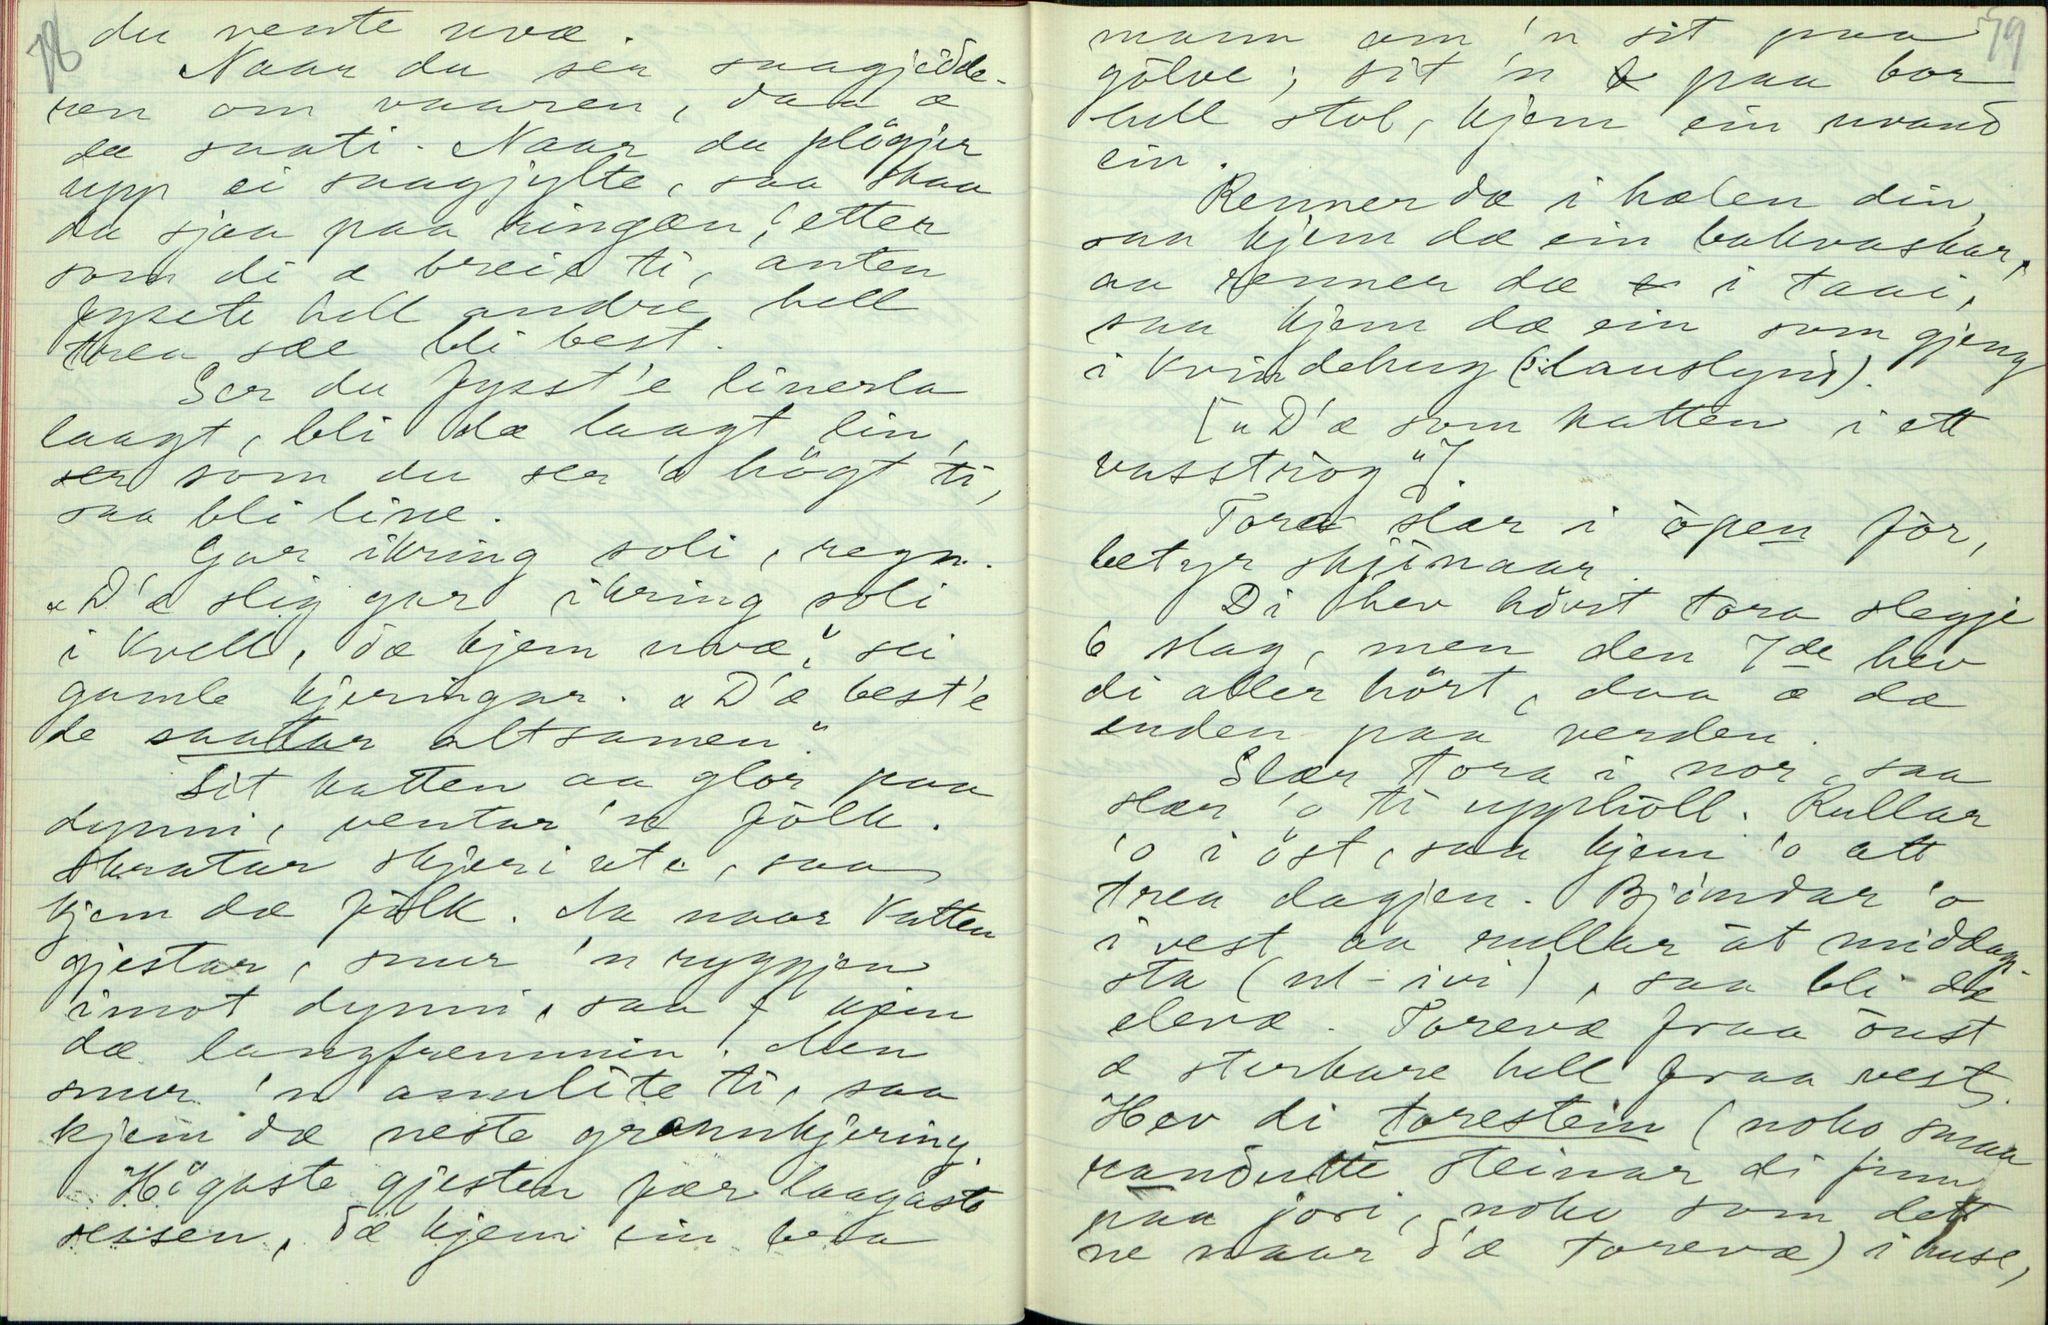 78
du vente uvæ.
Naar du ser saagjödde-
ren om vaaren, daa æ
dæ saati. Naar du plögjer
upp ei saagjylte, saa skaa
du sjaa paa ringæn, etter
som di æ breie ti, anten
fysste hell andre hell
trea sæe bli best.
Ser du fysst'e linerla
laagt, bli dæ laagt lin,
ser som du ser 'a högt ti,
saa bli line.
Gar ikring soli, regn.
"D'æ slig gar ikring soli
i kvell, dæ kjem uvæ", sei
gamle kjeringar. "D'æ best'e
de saatar altsamen".
Sit katten aa glor paa
dynni, ventar 'n fólk.
Skratar skjeri ute, saa
kjem dæ fólk. Aa naar katten
gjestar, snur 'n ryggjen
imot dynni, saa kjem
dæ langfremmin. Men
snur 'n annlite ti, saa
kjem dæ neste grannkjering.
Högaste gjesten fær laagaste
sessen, dæ kjem ein bra
79
mann om 'n sit paa
gólve; sit 'n paa bor
hell stol, kjem ein uvand
ein.
Renner dæ i hælen din,
saa kjem dæ ein bakvaskar,
aa renner dæ i taai,
saa kjem dæ ein som gjeng
i kvindehug (ɔ: lauslynd).
["D'æ som katten i ett
vasstrog"].
Tora slær i ópen fòr,
betyr skjinaar.
Di hev hövst tora slegje
6 slag, men den 7de hev
di aller hört, daa æ dæ
enden paa verden.
Slær tora i nor, saa
slær 'o ti upphòll. Rullar
'o i öst, saa kjem 'o att
trea dagjen. Bjöndar 'o
i vest aa rullar åt middag-
sta (ut-ivi), saa bli dæ
elevæ. Torevæ fraa öust
æ sterkare hell fraa vest.
Hev di torestein (noko smaa
randutte steinar di finn
paa jori, noko som dett
ne naar d'æ torevæ) i huse,